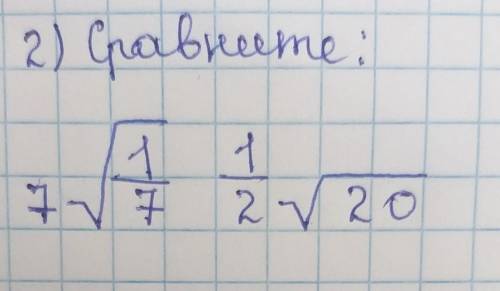 2) Сравните:
7√(1/7) 1/2 √20